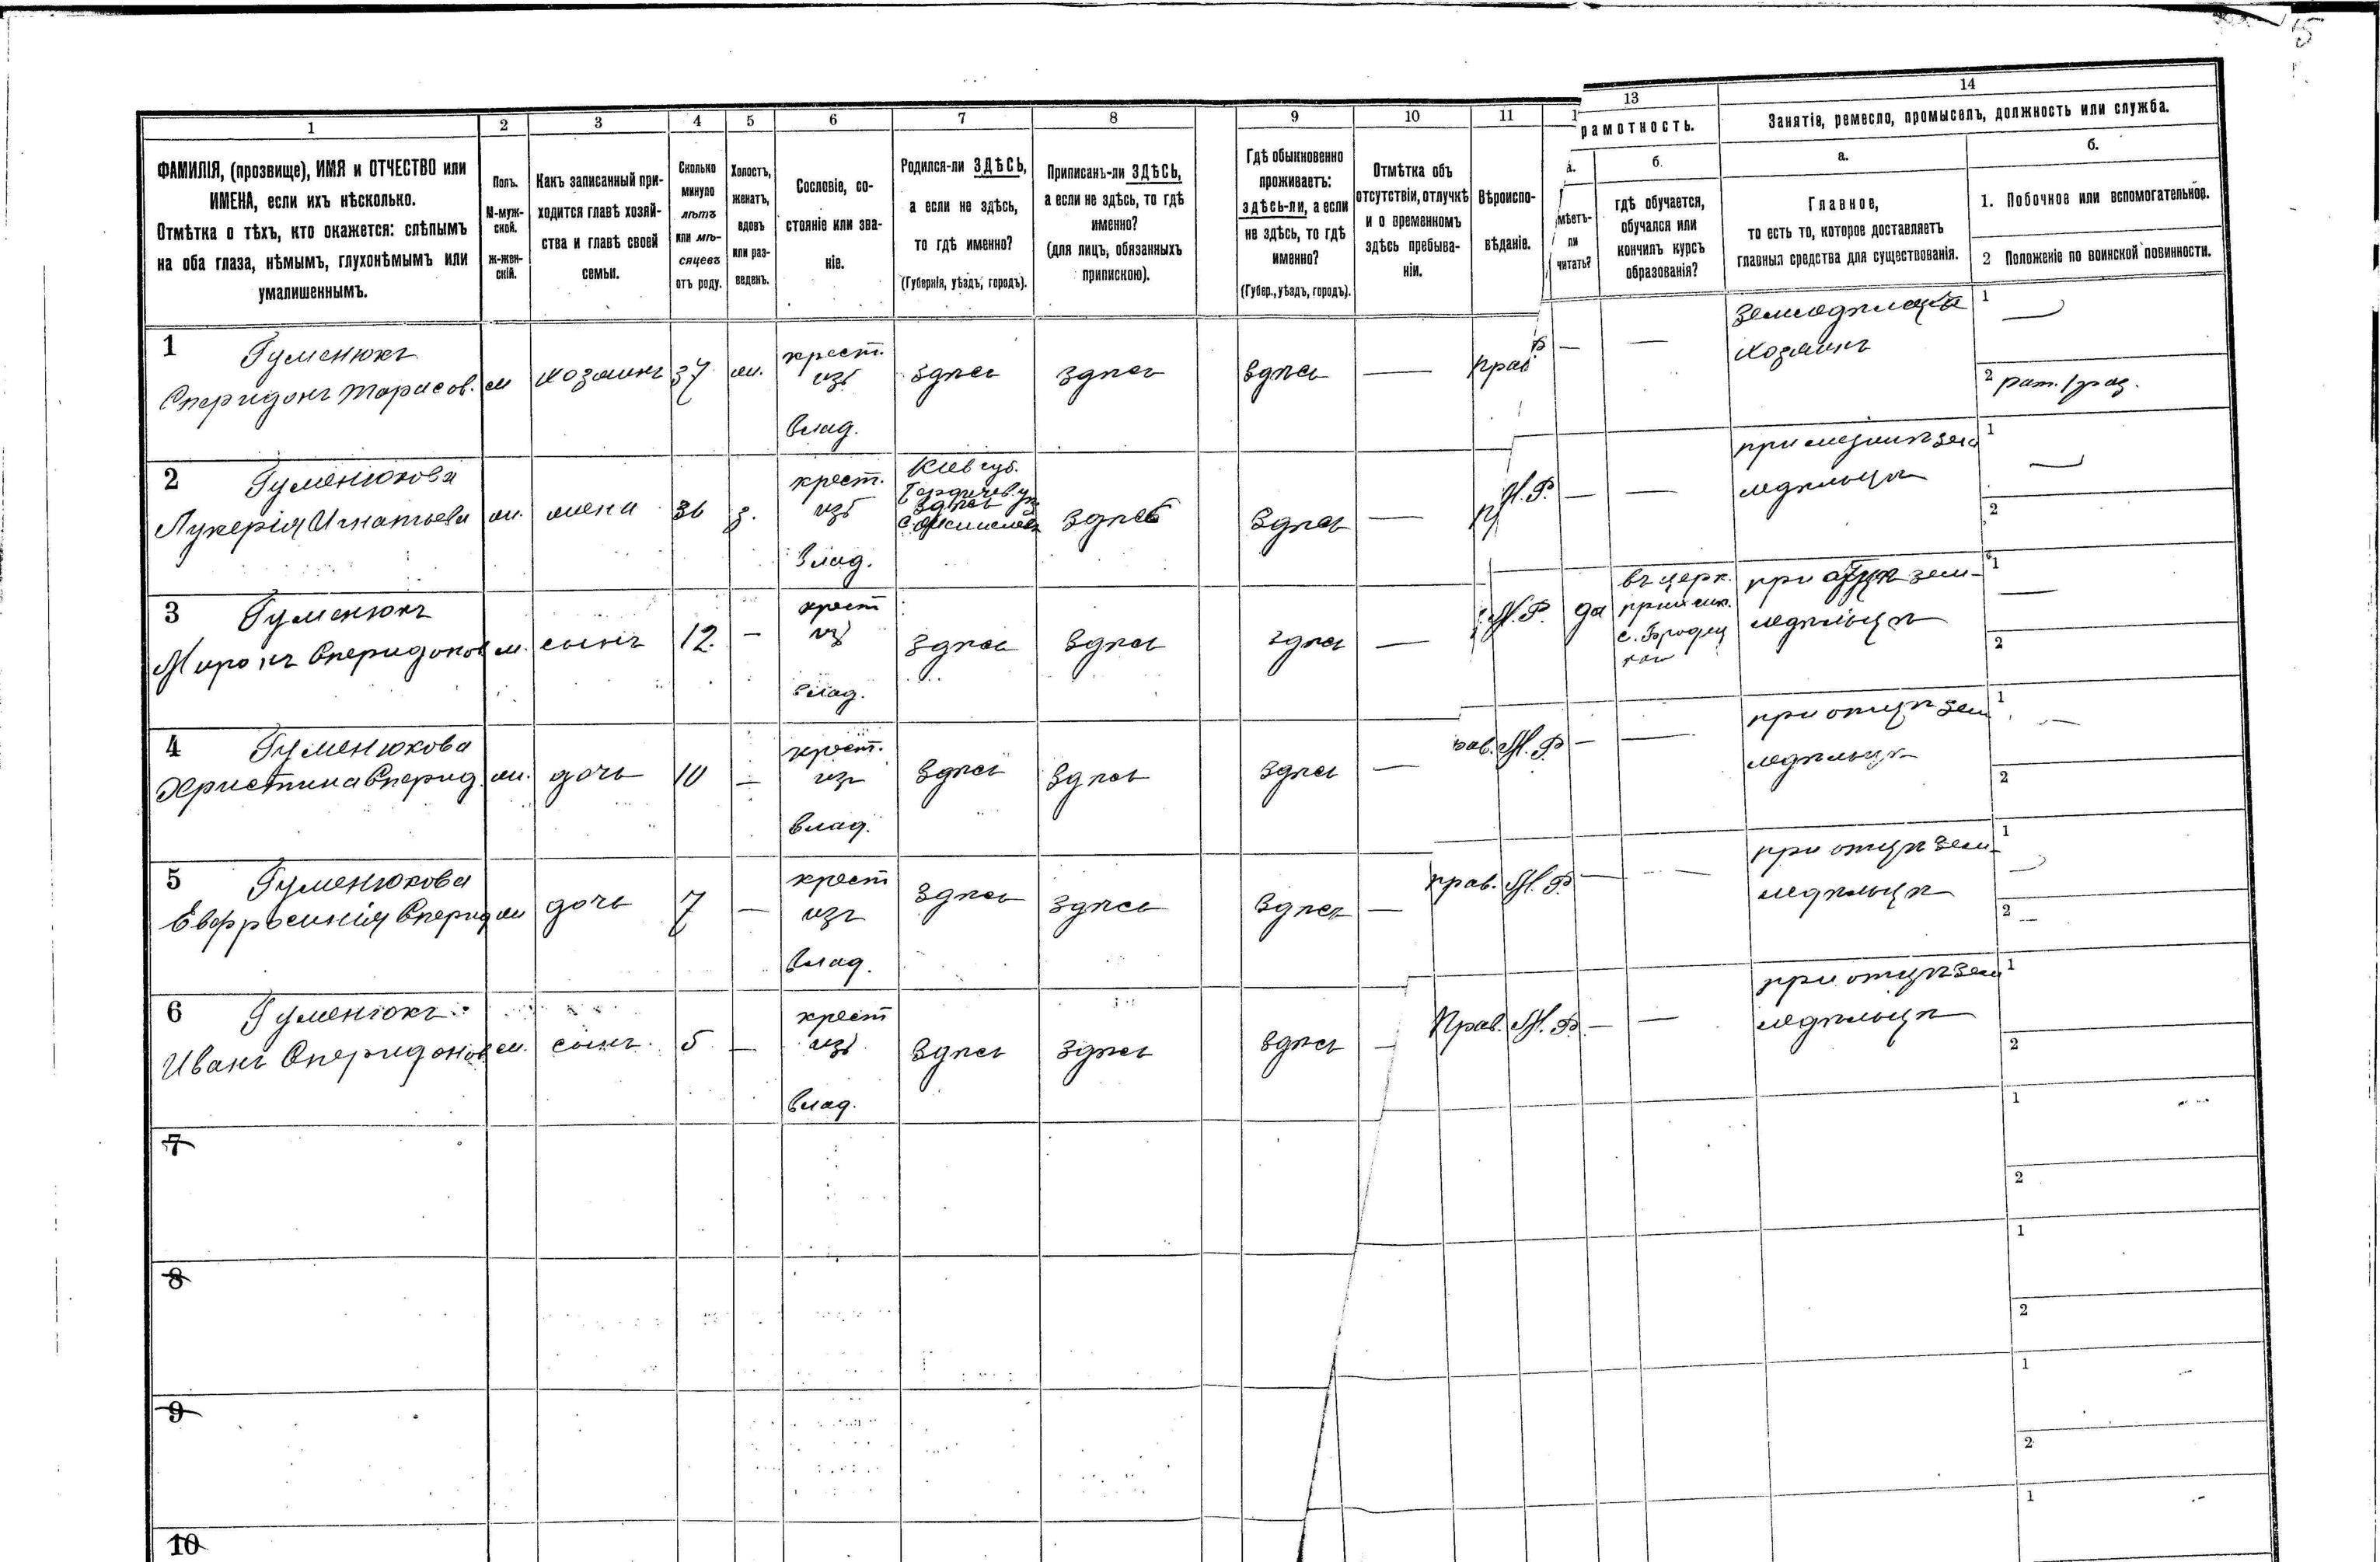 15
1
2
3
4
5
6
7
8
9
10
11
1
13
14
ФАМИЛІЯ, (прозвище), ИМЯ и ОТЧЕСТВО или
ИМЕНА, если ихъ нѣсколько.
Отмѣтка о тѣхъ, кто окажется: слѣпымъ
на оба глаза, нѣмымъ, глухонѣмымъ или
умалишеннымъ.
Полъ.
М-муж-
ской.
ж-жен-
скій.
Какъ записанный при-
ходится главѣ хозяй-
ства и главѣ своей
семьи.
Сколько
минуло
лѣтъ
или мѣ-
сяцевъ
отъ роду.
Холостъ,
женатъ,
вдовъ
или раз-
веденъ.
Сословіе, со-
стояніе или зва-
ніе.
Родился-ли ЗДѢСЬ,
а если не здѣсь,
то гдѣ именно?
(Губернія, уѣздъ, городъ).
Приписанъ-ли ЗДѢСЬ,
а если не здѣсь, то гдѣ
именно?
(для лицъ, обязанныхъ
припискою).
Гдѣ обыкновенно
проживаетъ:
здѣсь-ли, а если
не здѣсь, то гдѣ
именно?
(Губер., уѣздъ, городъ).
Отмѣтка объ
отсутствіи, отлучкѣ
и о временномъ
здѣсь пребыва-
ніи.
Вѣроиспо-
вѣданіе.
рамотность.
а.
мѣетъ-
ли
читать?
б.
гдѣ обучается,
обучался или
кончилъ курсъ
образованія?
Занятіе, ремесло, промыселъ, должность или служба.
а.
Главное,
то есть то, которое доставляетъ
главныя средства для существованія.
б.
1. Побочное или вспомогательное.
2 Положеніе по воинской повинности.
1 Гуменюкъ
Спиридонъ Тарасов. м хозяинъ 37 ж. крест. изъ влад. здѣсь здѣсь здѣсь — прав — —
хозяинъ
1 —
2 рат. 1 раз.
2 Гуменюкова
Лукерія Игнатьева ж. жена 36 з. крест. изъ влад.
Кіев губ.
Бердичев. уѣз
здѣсь здѣсь — М. Р. — —
1 —
2
3 Гуменюкъ
Миронъ Спиридонов м. сынъ 12. — крест изъ влад. здѣсь здѣсь здѣсь — М. Р. да
въ церк.
прих. шк.
при отцѣ зем-
ледѣльцѣ
1 —
2
4 Гуменюкова
Христина Спирид. ж. дочь 10 — крест. изъ влад. здѣсь здѣсь здѣсь — рав. М. Р — —
при отцѣ зем
ледѣльцѣ
1 —
2
5 Гуменюкова
Евфросинія Спирид ж дочь 7 — крест изъ влад. здѣсь здѣсь здѣсь — прав. М. Р — —
при отцѣ зем-
ледѣльцѣ
1
2 —
6 Гуменюкъ
Иванъ Спиридонов м. сынъ. 5 — крест изъ влад. здѣсь здѣсь здѣсь — Прав. М. Р. — —
при отцѣ зем
ледѣльцѣ
1
2
7
1
2
8
1
2
9
1
2
10
1